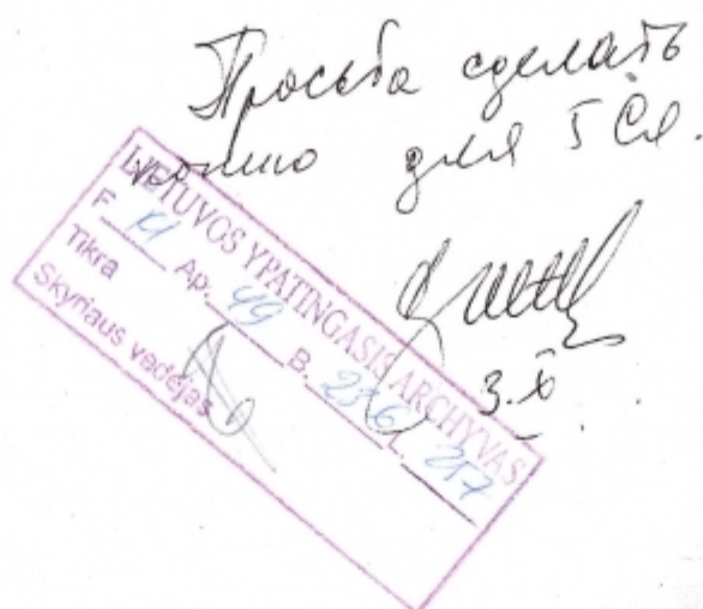 Просьба сделать
копию для 5 Сл.
3.X
LIETUVOS YPATINGASIS ARCHYVAS
F K1 Ap. 49 B. 236 L. 217
Tikra
Skyriaus vedėjas